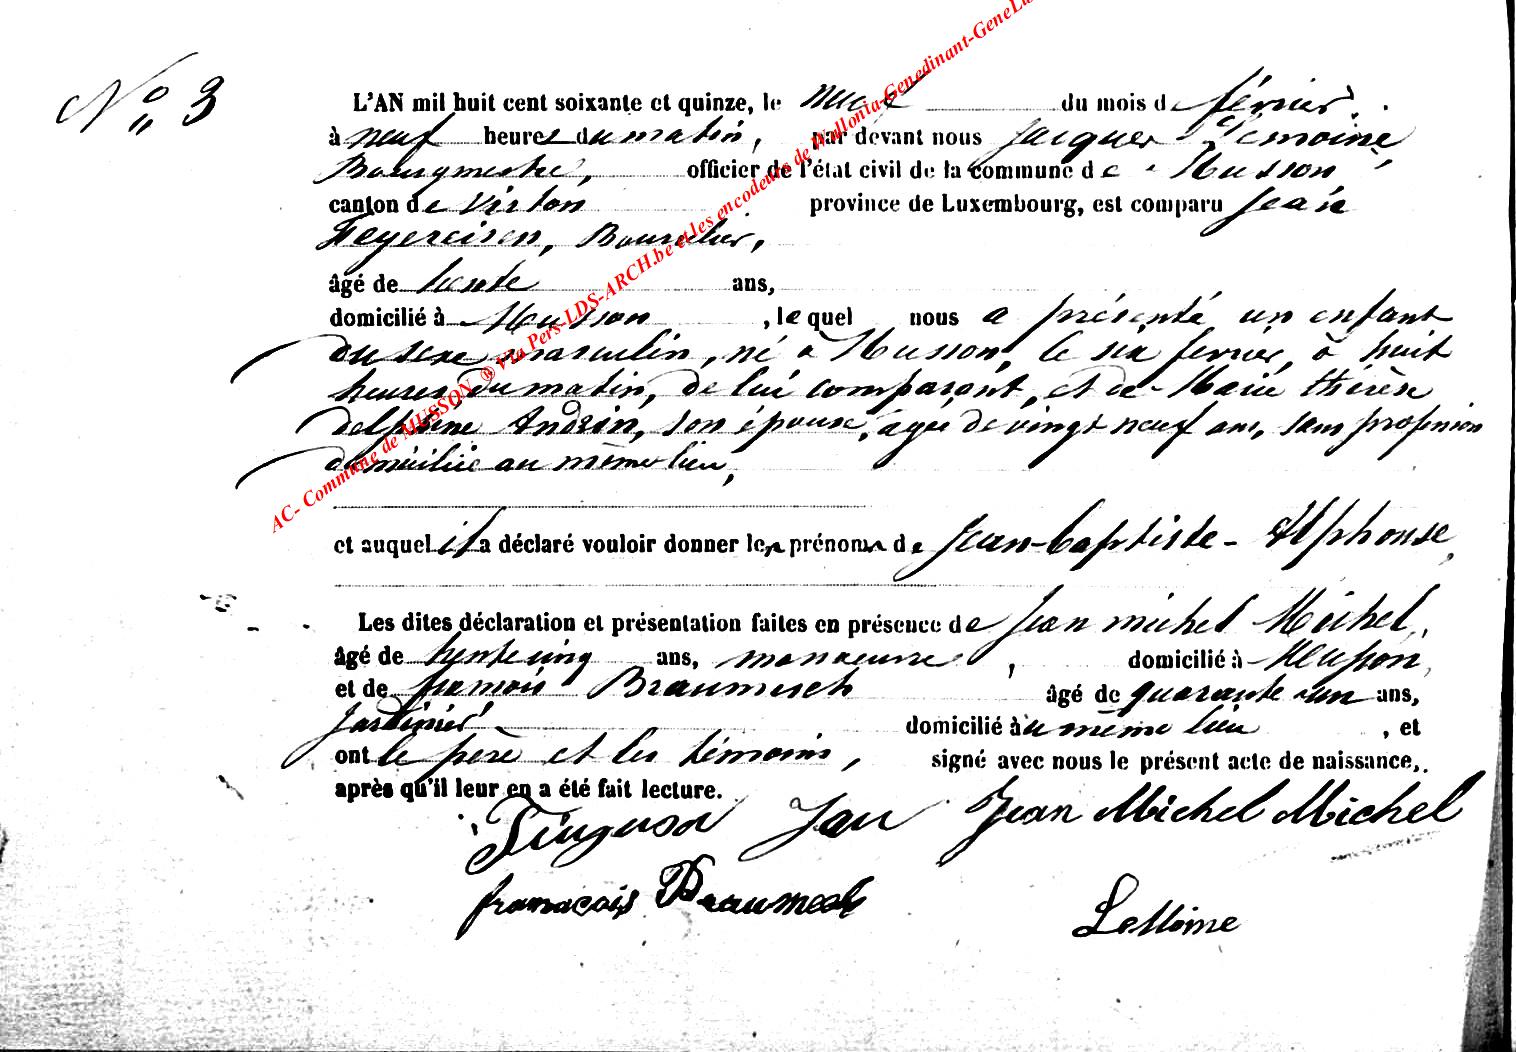 N° 3
L'AN mil huit cent soixante et quinze, le neuf du mois de février
à neuf heures du matin, par devant nous Jacques Lemoine
Bourgmestre, officier de l'état civil de la commune de Musson
canton de Virton province de Luxembourg, est comparu Jean
Feyereisen, Bourrelier,
âgé de trente ans,
domicilié à Musson, lequel nous a présenté un enfant
du sexe masculin, né à Musson, le six février, à huit
heures du matin, de lui comparant, et de Marie thérèse
delphine Andrin, son épouse, agée de vingt neuf ans, sans profession
domiciliée au même lieu,
et auquel il a déclaré vouloir donner les prénoms de Jean-baptiste-Alphonse,
Les dites déclaration et présentation faites en présence de Jean michel Michel,
âgé de trente cinq ans, manoeuvre, domicilié à Musson,
et de françois Braumesch âgé de quarante-un ans,
Jardinier domicilié au même lieu, et
ont le père et les témoins, signé avec nous le présent acte de naissance,
après qu'il leur en a été fait lecture.
Jean Jean Michel Michel
LeMoine
AC- Commune de MUSSON ® Via Pers-LDS-ARCH.be et les encodeurs de Wallonia-Genedinant-GeneLu